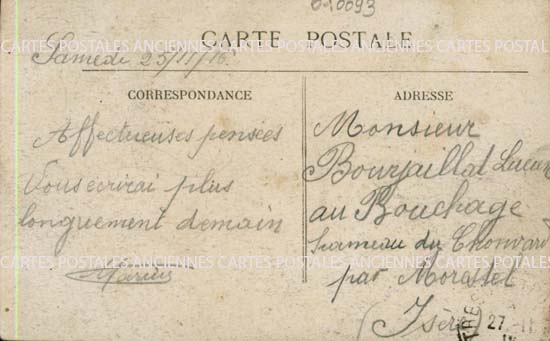 010093
CARTE POSTALE
CARTES POSTALES ANCIENNES CARTES POSTALES ANCIENNES CARTES POSTALES
Samedi 25/11/16
CORRESPONDANCE
Affectueuses pensées
Vous écrirai plus
longuement demain
Marius
ADRESSE
Monsieur
Bourjaillat Lucien
au Bouchage
hameau du
par Morestel
(Isère)
27 - 11
CARTES POSTALES ANCIENNES CARTES POSTALES ANCIENNES CARTES POSTALES